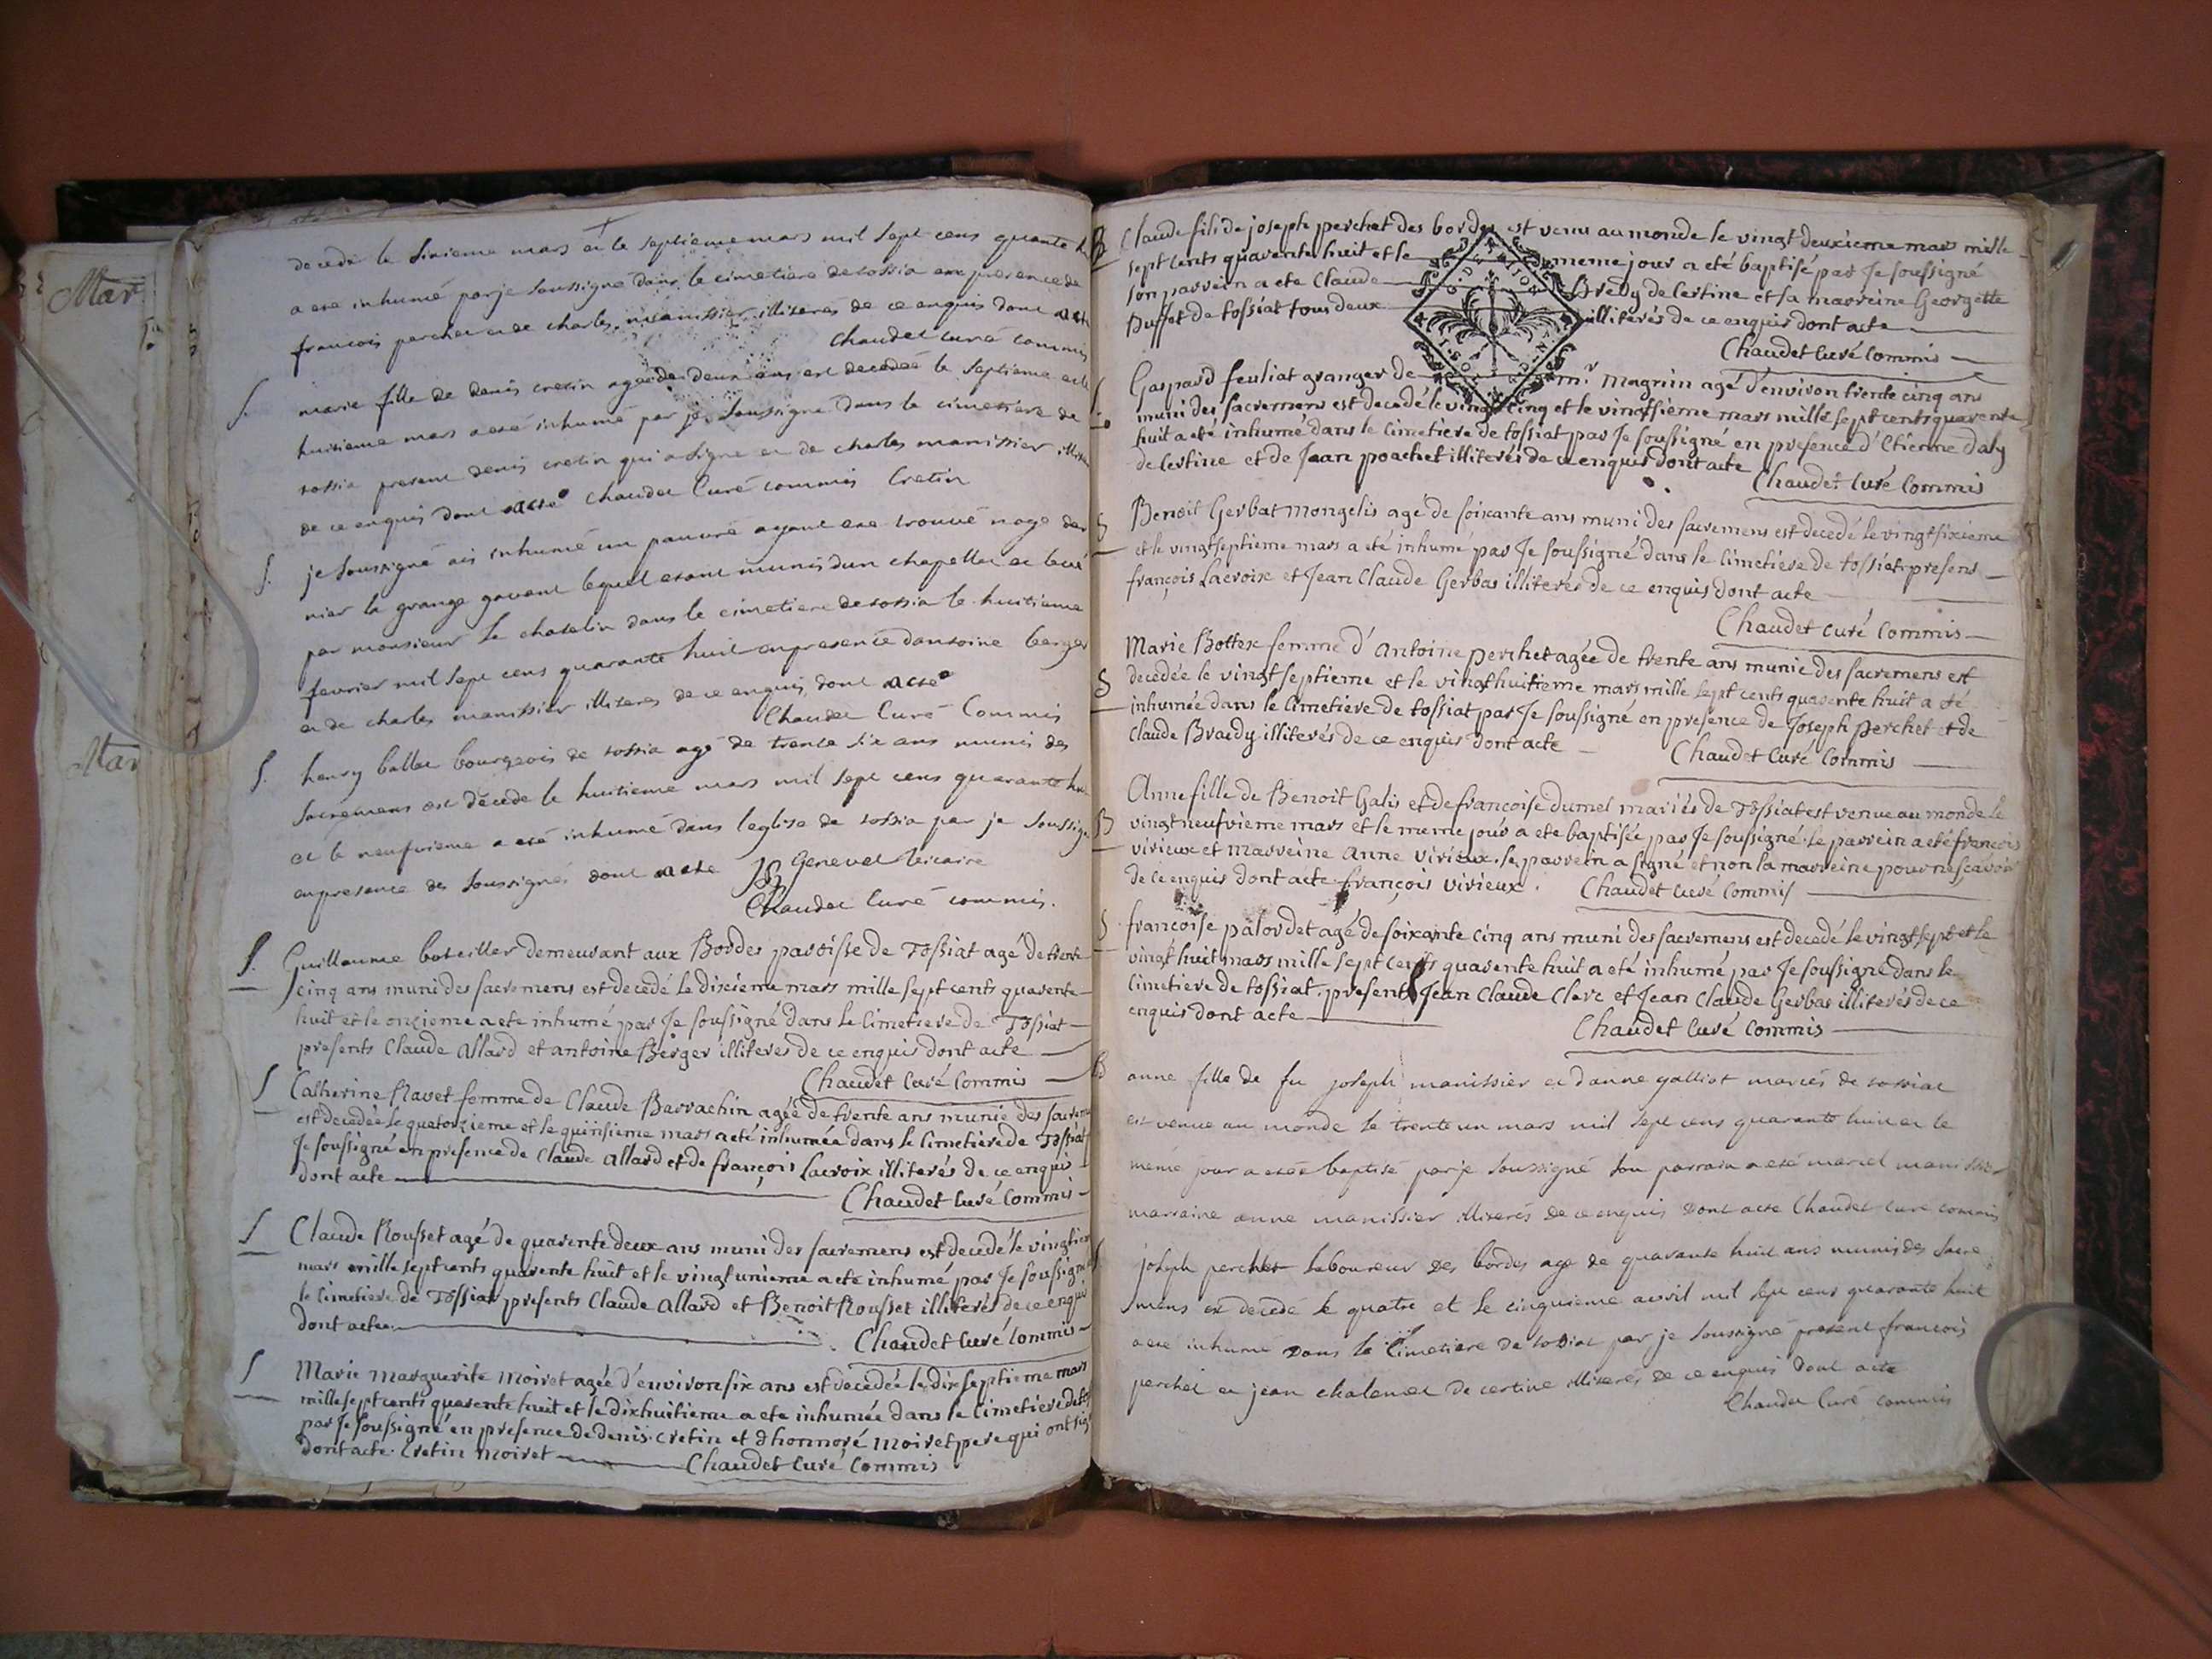 Mar
Mar
decede le sixieme mars et le septieme mars mil sept cens quarante
a eté inhumé par je soussigné dans le cimetiere de tossia en presence de
francois perchet et de charles manissier illiteres de ce enquis dont acte
chaudet curé commis
S. marie fille de denis cretin agée de deux ans est decedée le septieme et le
huitieme mars a eté inhumé par je soussigné dans le cimetiere de
tossia present denis cretin qui a signé et de charles manissier
de ce enquis dont acte chaudet Curé commis Cretin
S. je soussigné ais inhumé un pauvre ayant ete trouvé
nier la grange lequel etant munis d'un chapellet et
par monsieur le chatelin dans le cimetiere de tossia le huitieme
fevrier mil sept cens quarante huit en presence dantoine berger
et de charles manissier illiteres de ce enquis dont acte
Chaudet Curé Commis
S. henry ballet bourgeois de tossia agé de trente six ans munis des
sacremens est décédé le huitieme mars mil sept cens quarante
et le neufvieme a eté inhumé dans leglise de tossia par je soussigné
en presence des soussignés dont acte JB Genevet vicaire
Chaudet Curé commis.
S. Guillaume boteiller demeurant aux Bordes paroisse de Tossiat agé de trente
cinq ans muni des sacremens est decedé le dixiéme mars mille sept cents quarente
huit et le onzieme a eté inhumé par Je soussigné dans le Cimetiere de Tossiat
présents Claude Allard et antoine Berger illiterés de ce enquis dont acte
Chaudet Curé Commis
S Catherine Ravet femme de Claude Barrachin agée de trente ans munie des sacrem
est decedée le quatorzieme et le quinsieme mars a eté inhumée dans le Cimetiére de Tossiat
Je soussigné en presence de Claude Allard et de françois Lacroix illiterés de ce enquis
dont acte
Chaudet Curé Commis
S Claude Rousset agé de quarente deux ans muni des sacremens est decedé le vingtiem
mars mille sept cents quarente huit et le vingt unieme a eté inhumé par Je soussigné
le Cimetiére de Tossiat présents Claude Allard et Benoit Rousset illiterés de ce enquis
dont acte.
Chaudet Curé Commis
S Marie Marguerite Moiret agée d'environ six ans est decedée le dix septieme mars
mille sept cents quarente huit et le dixhuitieme a eté inhumée dans le Cimetiére de
par Je soussigné en presence de denis cretin et dhonnoré Moiret pere qui ont
dont acte Cretin Moiret Chaudet Curé Commis
B Claude fils de joseph perchet des bordes est venu au monde le vingt deuxieme mars mille
sept cents quarente huit et le meme jour a eté baptisé par Je soussigné
son parrein a eté Claude Bredy de Certine et sa marreine Georgette
Buffet de tossiat tous deux illiterés de ce enquis dont acte
Chaudet Curé Commis
S Gaspard feuliat granger de mr Magnin agé d'environ trente cinq ans
muni des sacremens est decedé le vingt cinq et le vingtsieme mars mille sept cents quarente
huit a eté inhumé dans le Cimetiere de tossiat par Je soussigné en presence d'Etienne daly
de Certine et de Jean poachet illiterés de ce enquis dont acte
Chaudet Curé Commis
S Benoit Gerbat Mongelis agé de soixante ans muni des sacremens est decedé le vingt sixiéme
et le vingt septieme mars a eté inhumé par Je soussigné dans le Cimetiere de tossiat presens
françois Lacroix et Jean Claude Gerbas illiterés de ce enquis dont acte
Chaudet curé Commis
S Marie Bottex femme d'Antoine perchet agée de trente ans munie des sacremens est
decedée le vingt septieme et le vingthuitieme mars mille sept cents quarente huit a eté
inhumée dans le Cimetiére de tossiat par Je soussigné en presence de Joseph perchet et de
Claude Bready illiterés de ce enquis dont acte
Chaudet Curé Commis
B Anne fille de Benoit Galis et de françoise dumel mariés de Tossiat est venue au monde le
vingt neufvieme mars et le meme jour a eté baptisée par Je soussigné. le parrein a eté françois
virieux et marreine anne virieux. le parrein a signé et non la marreine pour ne sçavoir
de ce enquis dont acte françois virieux. Chaudet Curé Commis
S françoise palordet agé de soixante cinq ans muni des sacremens est decedé le vingt sept et le
vingt huit mars mille sept cents quarente huit a eté inhumé par Je soussigné dans le
Cimetiere de tossiat. present Jean Claude Clerc et Jean Claude Gerbas illiterés de ce
enquis dont acte
Chaudet Curé Commis
B anne fille de fu joseph manissier et danne galliot mariés de tossiat
est venue au monde le trente un mars mil sept cens quarante huit et le
même jour a etéé baptisé par je soussigné son parrain a eté marcel manissier
marraine anne manissier illiterés de ce enquis dont acte Chaudet curé commis
S joseph perchet laboureur des bordes agé de quarante huit ans munis des sacre
mens est decedé le quatre et le cinquieme avril mil sept cens quarante huit
a eté inhumé dans le Cimetiere de tossiat par je soussigné present francois
perchet et jean chalemel de certine illiterés de ce enquis dont acte
Chaudet Curé commis